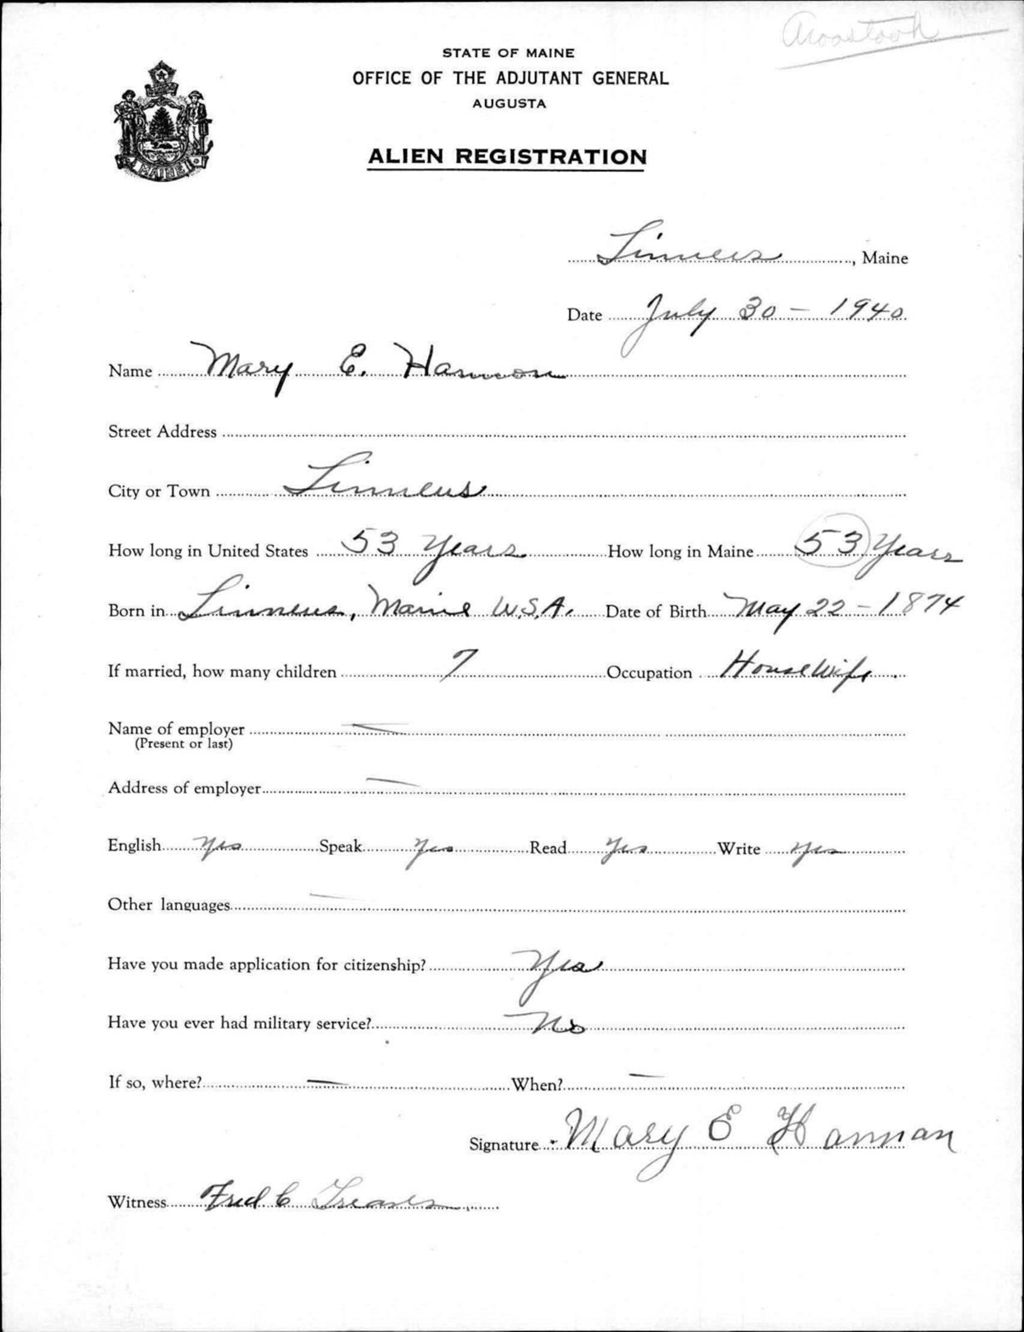 Aroostook
STATE OF MAINE
OFFICE OF THE ADJUTANT GENERAL
AUGUSTA
ALIEN REGISTRATION
MAINE
Linneus, Maine
Date July 30 - 1940
Name Mary E. Hannon
Street Address
City or Town Linneus
How long in United States 53 Years How long in Maine 53 Years
Born in Linneus, Maine U.S.A. Date of Birth May 22 - 1874
If married, how many children 7 Occupation HouseWife
Name of employer —
(Present or last)
Address of employer —
English Yes Speak Yes Read Yes Write Yes
Other languages —
Have you made application for citizenship? Yes
Have you ever had military service? No
If so, where? — When? —
Signature - Mary E Hannan
Witness Fred C